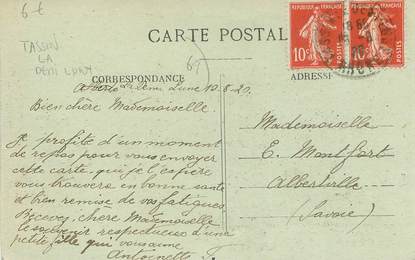 6 €
TASSIN
LA
DEMI LUNE
69
CARTE POSTALE
RÉPUBLIQUE FRANÇAISE
RÉPUBLIQUE FRANÇAISE
10c
POSTES
10c
POSTES
CORRESPONDANCE
ADRESSE
demi Lune 10.8.20.
Bien chère Mademoiselle.
Je profite d'un moment
de repos pour vous envoyer
cette carte, qui je l'espère
vous trouvera en bonne santé
et bien remise de vos fatigues
Recevez, chère Mademoiselle
le souvenir respectueux d'une
petite fille qui vous aime.
Antoinette
Mademoiselle
E. Montfort
Albertville
(Savoie)